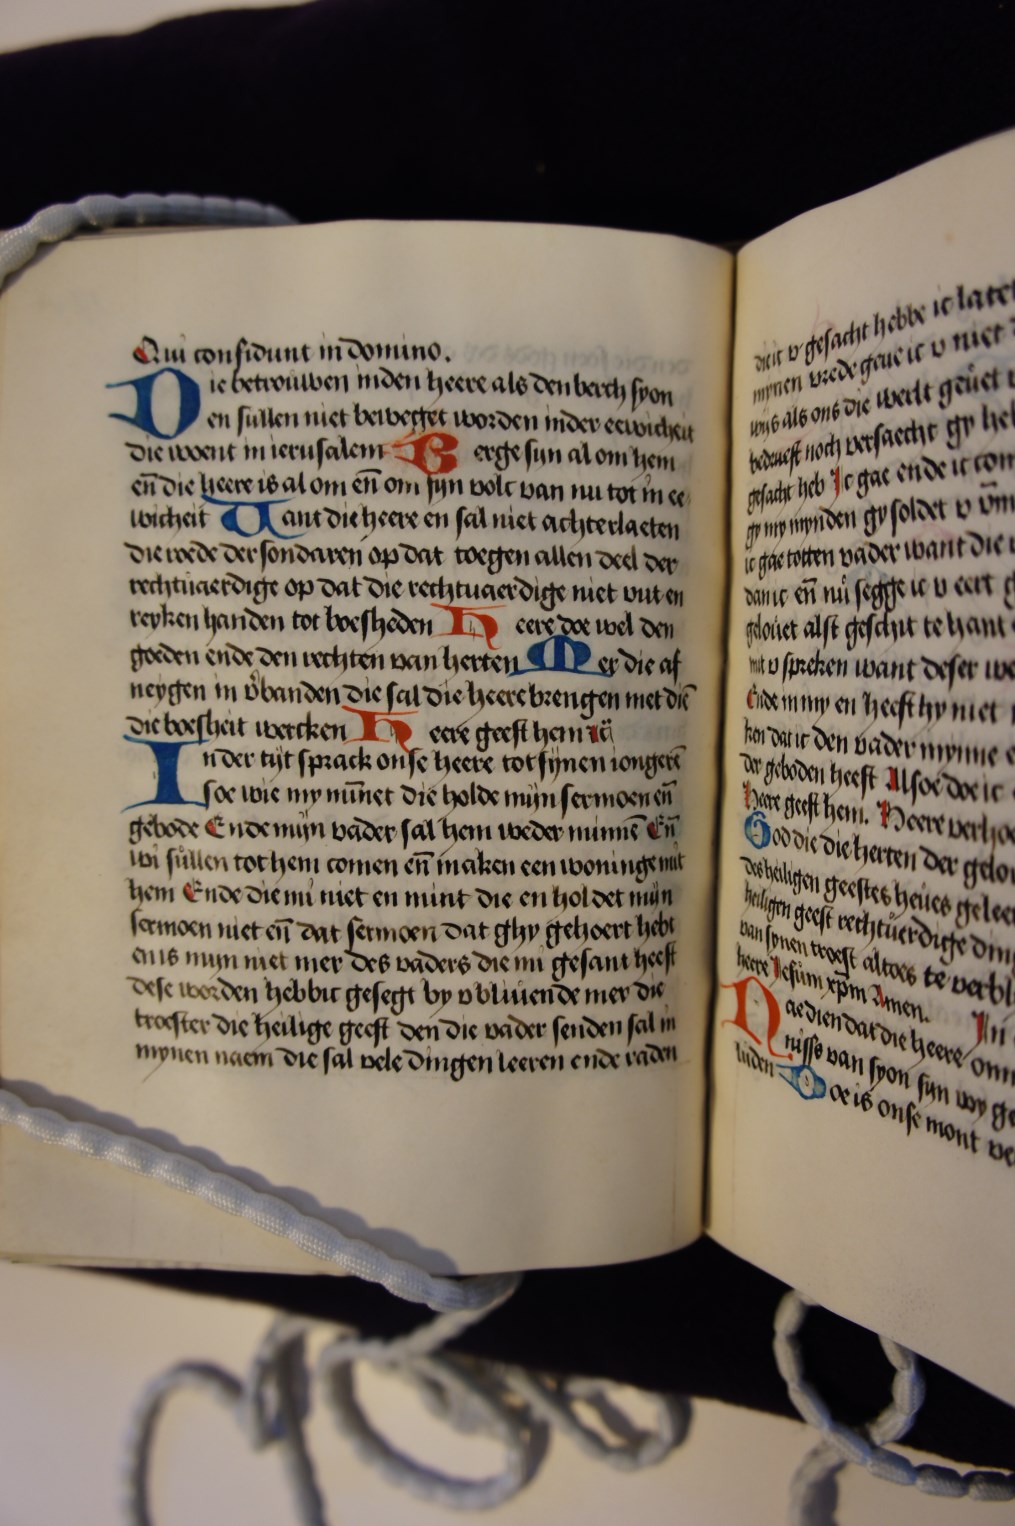 Qui confidunt in domino.
Die betrouwen inden heere als den berch syon
en sullen niet beweget worden inder eewicheit
die woent in ierusalem Berge sijn al om hem
en̄ die heere is al om en̄ om sijn volc van nu tot in ee
wicheit Want die heere en sal niet achterlaeten
die roede der sondaren op dat toegen allen deel der
rechtuaerdige op dat die rechtuaerdige niet uut en
reyken handen tot boesheden Heere doe wel den
goeden ende den rechten van herten Mer die af
neygen in v̾banden die sal die heere brengen met diē
die boesheit wercken Heere geest hem
In der tijt sprack onse heere tot sijnen iongerē
soe wie my min̄et die holde mijn sermoen en̄
gebode Ende mijn vader sal hem weder minnē En̄
wi sullen tot hem comen en̄ maken een woninge mit
hem Ende die mi niet en mint die en holdet mijn
sermoen niet en̄ dat sermoen dat ghy gehoert hebt
en is mijn niet mer des vaders die mi gesant heeft
dese worden hebbic gesegt by v bliuende mer die
troester die heilige geest den die vader senden sal in
mynen naem die sal vele dingen leeren ende raden
die ic v gesacht hebbe ic late
mynen vrede geue ic v niet
wijs als ons die werlt geuet
noch versaecht gy
gesacht heb Ic gae ende ic com
gy my mynden gy soldet v
ic gae totten vader want die
dan ic en̄ nu segge ic v eert
gelouet alst geschit te hant
mit v spreken want deser
Ende in my en heeft hy niet
ken dat ic den vader mynne
der geboden heeft Alsoe doe ic
Heere geest hem. Heere
God die die herten der
des heiligen geestes
heiligen geest rechtuerdige
van synen troest altoes te
heere Iesum xp̄m Amen. In
Nae dien dat die heere
nisse van syon sijn wy
luden Doe is onse mont